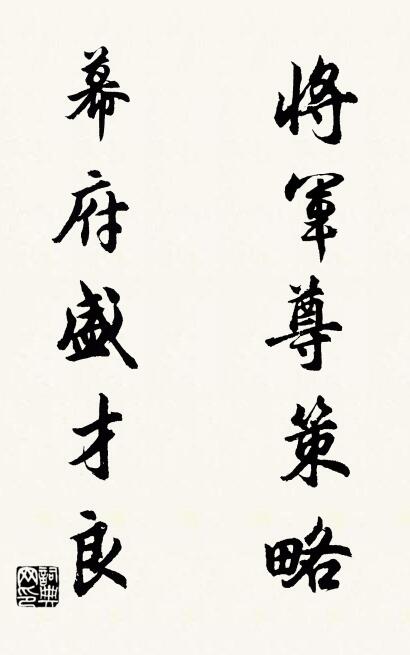 將軍尊策略
幕府盛才良
詞典網印